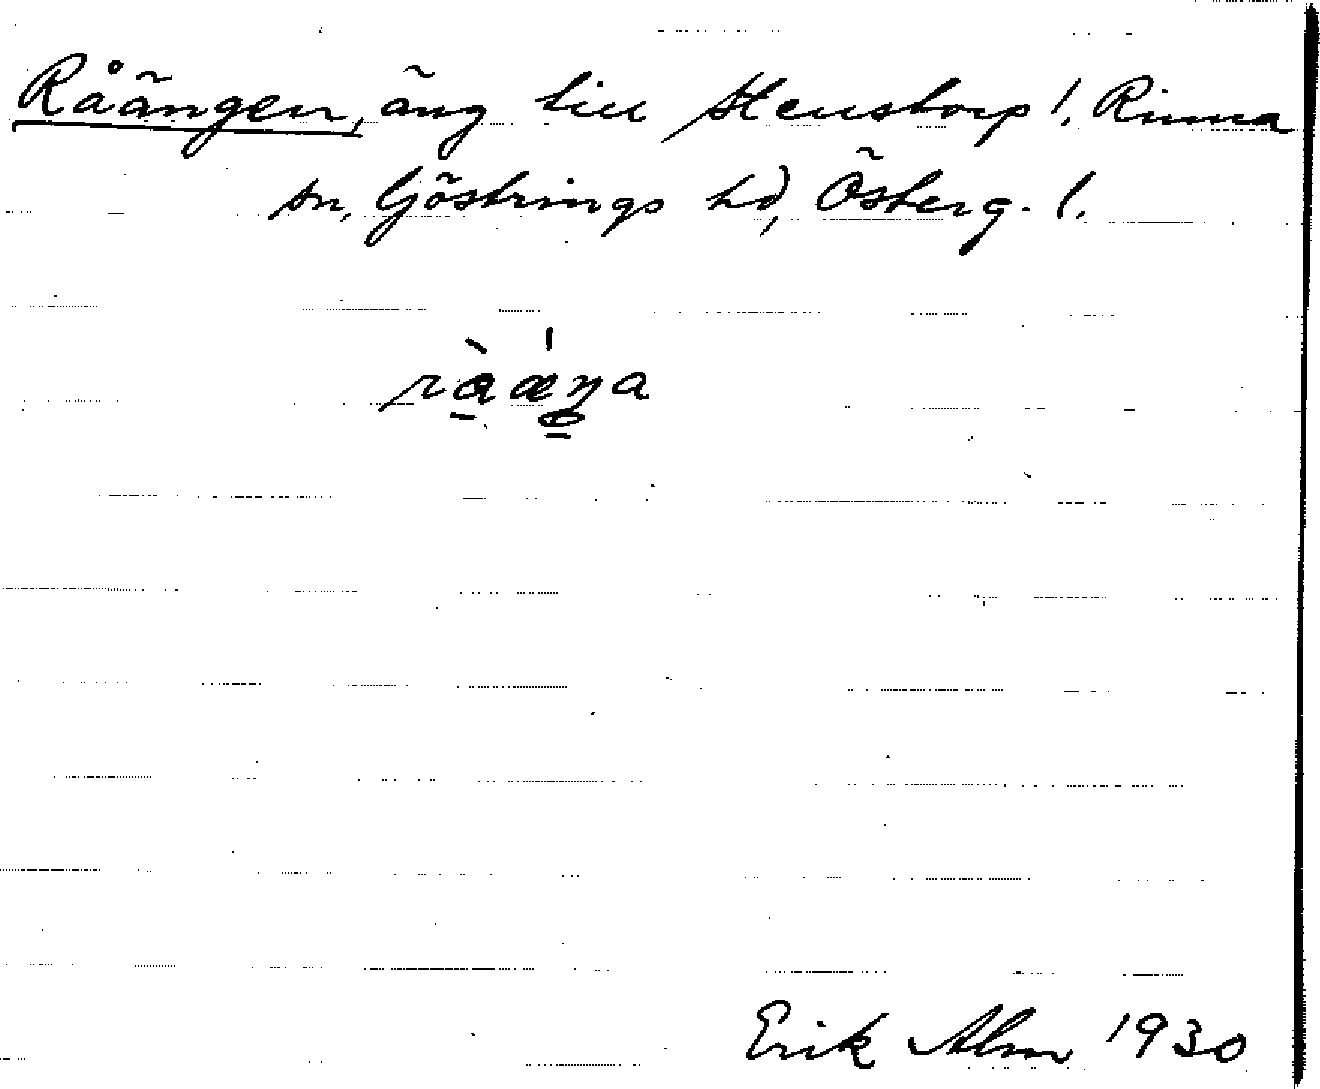 Råängen, äng till Stenstorp !, Rinna
sn, Göstrings hd, Österg. l.
ràæ̀ŋa
Erik Alm 1930